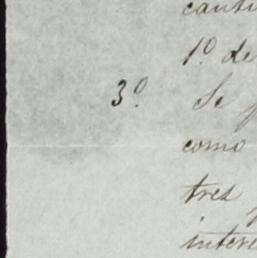 canti
1º de
3º. Se
como
tres
intere